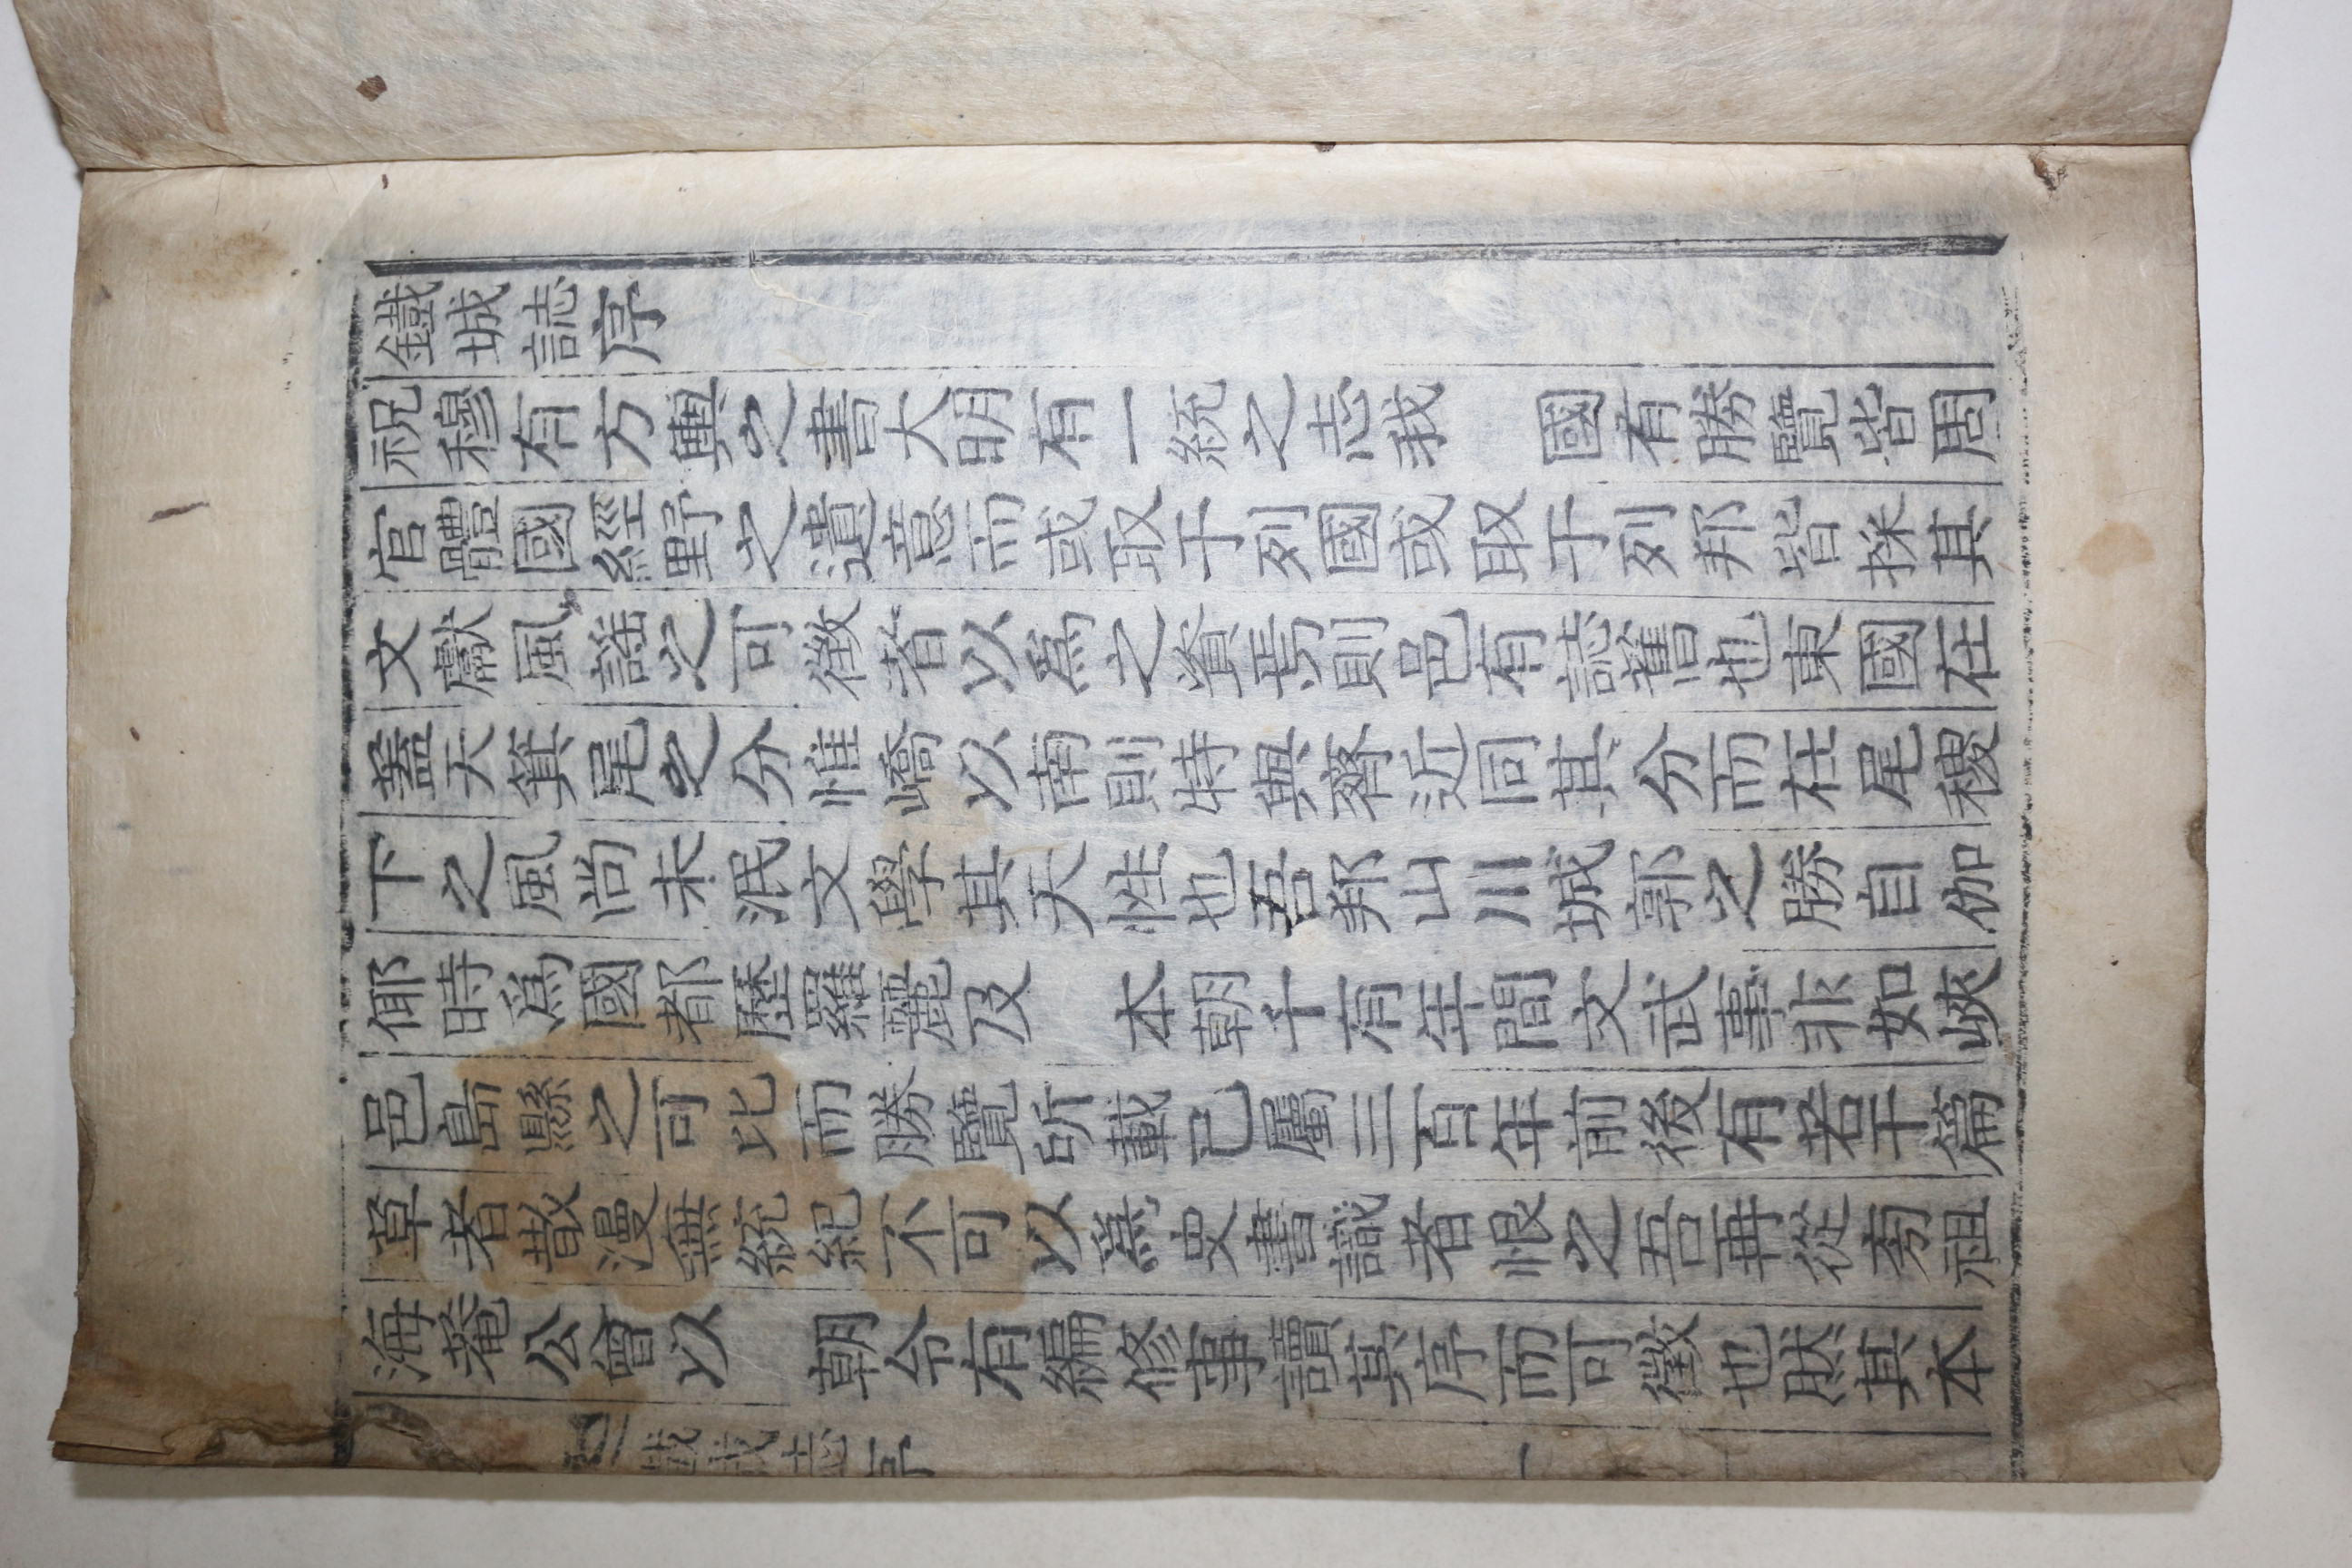 鐵城誌序
祝穆有方輿之書大明有一統之志我 國有勝覽皆周
官體國經野之遺意而或取于列國或取于列邦皆採其
文獻風謠之可徵者以爲之資焉則邑有誌舊也東國在
蓋天箕尾之分惟嶠以南則特與齊近同其分而在尾稷
下之風尚未泯文學其天性也吾邦山川城郭之勝自伽
倻時爲國都歷羅麗及 本朝千有年間文武事非如峽
邑島縣之可比而勝覽所載已屬三百年前後有若干篇
草者散漫無統紀不可以爲史書識者恨之吾再從旁祖
海菴公曾以 朝令有編修事讀其序而可徵也肰其本
鐵城志序 一